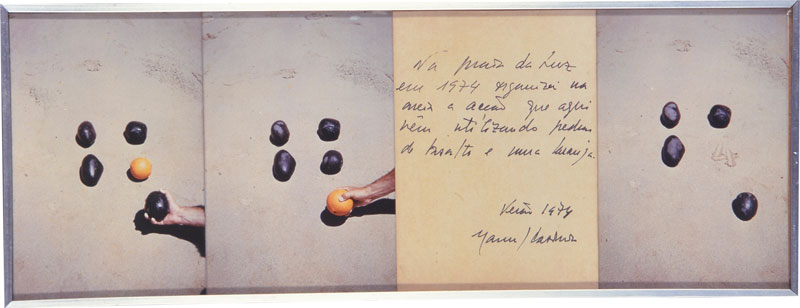 Na praia da Luz
em 1974 organizei na
areia a acção que aqui
vêm utilizando pedras
de basalto e uma laranja.
Verão 1974